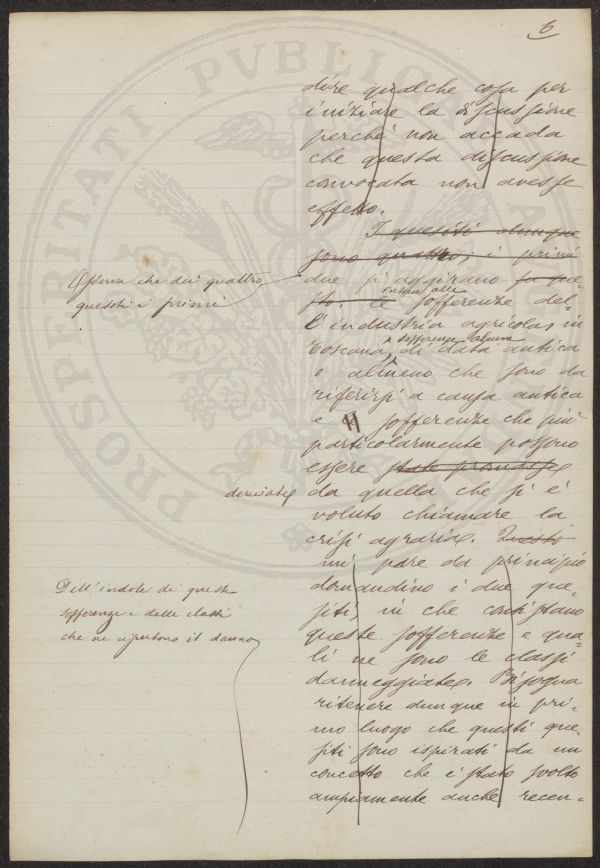 6
dire qualche cosa per
iniziare la discussione
perché non accada
che questa discussione
convocata non avesse
effetto.
I quesiti dunque
sono quattro, i primi
Osserva che dei quattro
quesiti i primi
due si aggirano su que-
sto: le intorno alle sofferenze del-
l'industria agricola in
Toscana, sofferenze talune di data antica
o almeno che sono da
riferirsi a causa antica
e sofferenze che più
particolarmente possono
essere state promosse
derivate
da quella che si è
voluto chiamare la
crisi agraria. Questo
mi pare da principio
Dell'indole di queste
sofferenze e delle classi
che ne risentono il danno
domandino i due que-
siti, in che consistano
queste sofferenze e qua-
li ne sono le classi
danneggiate. Bisogna
ritenere dunque in pri-
mo luogo che questi que-
siti sono ispirati da un
concetto che è stato svolto
ampiamente anche recen-
PROSPERITATI PVBLICAE